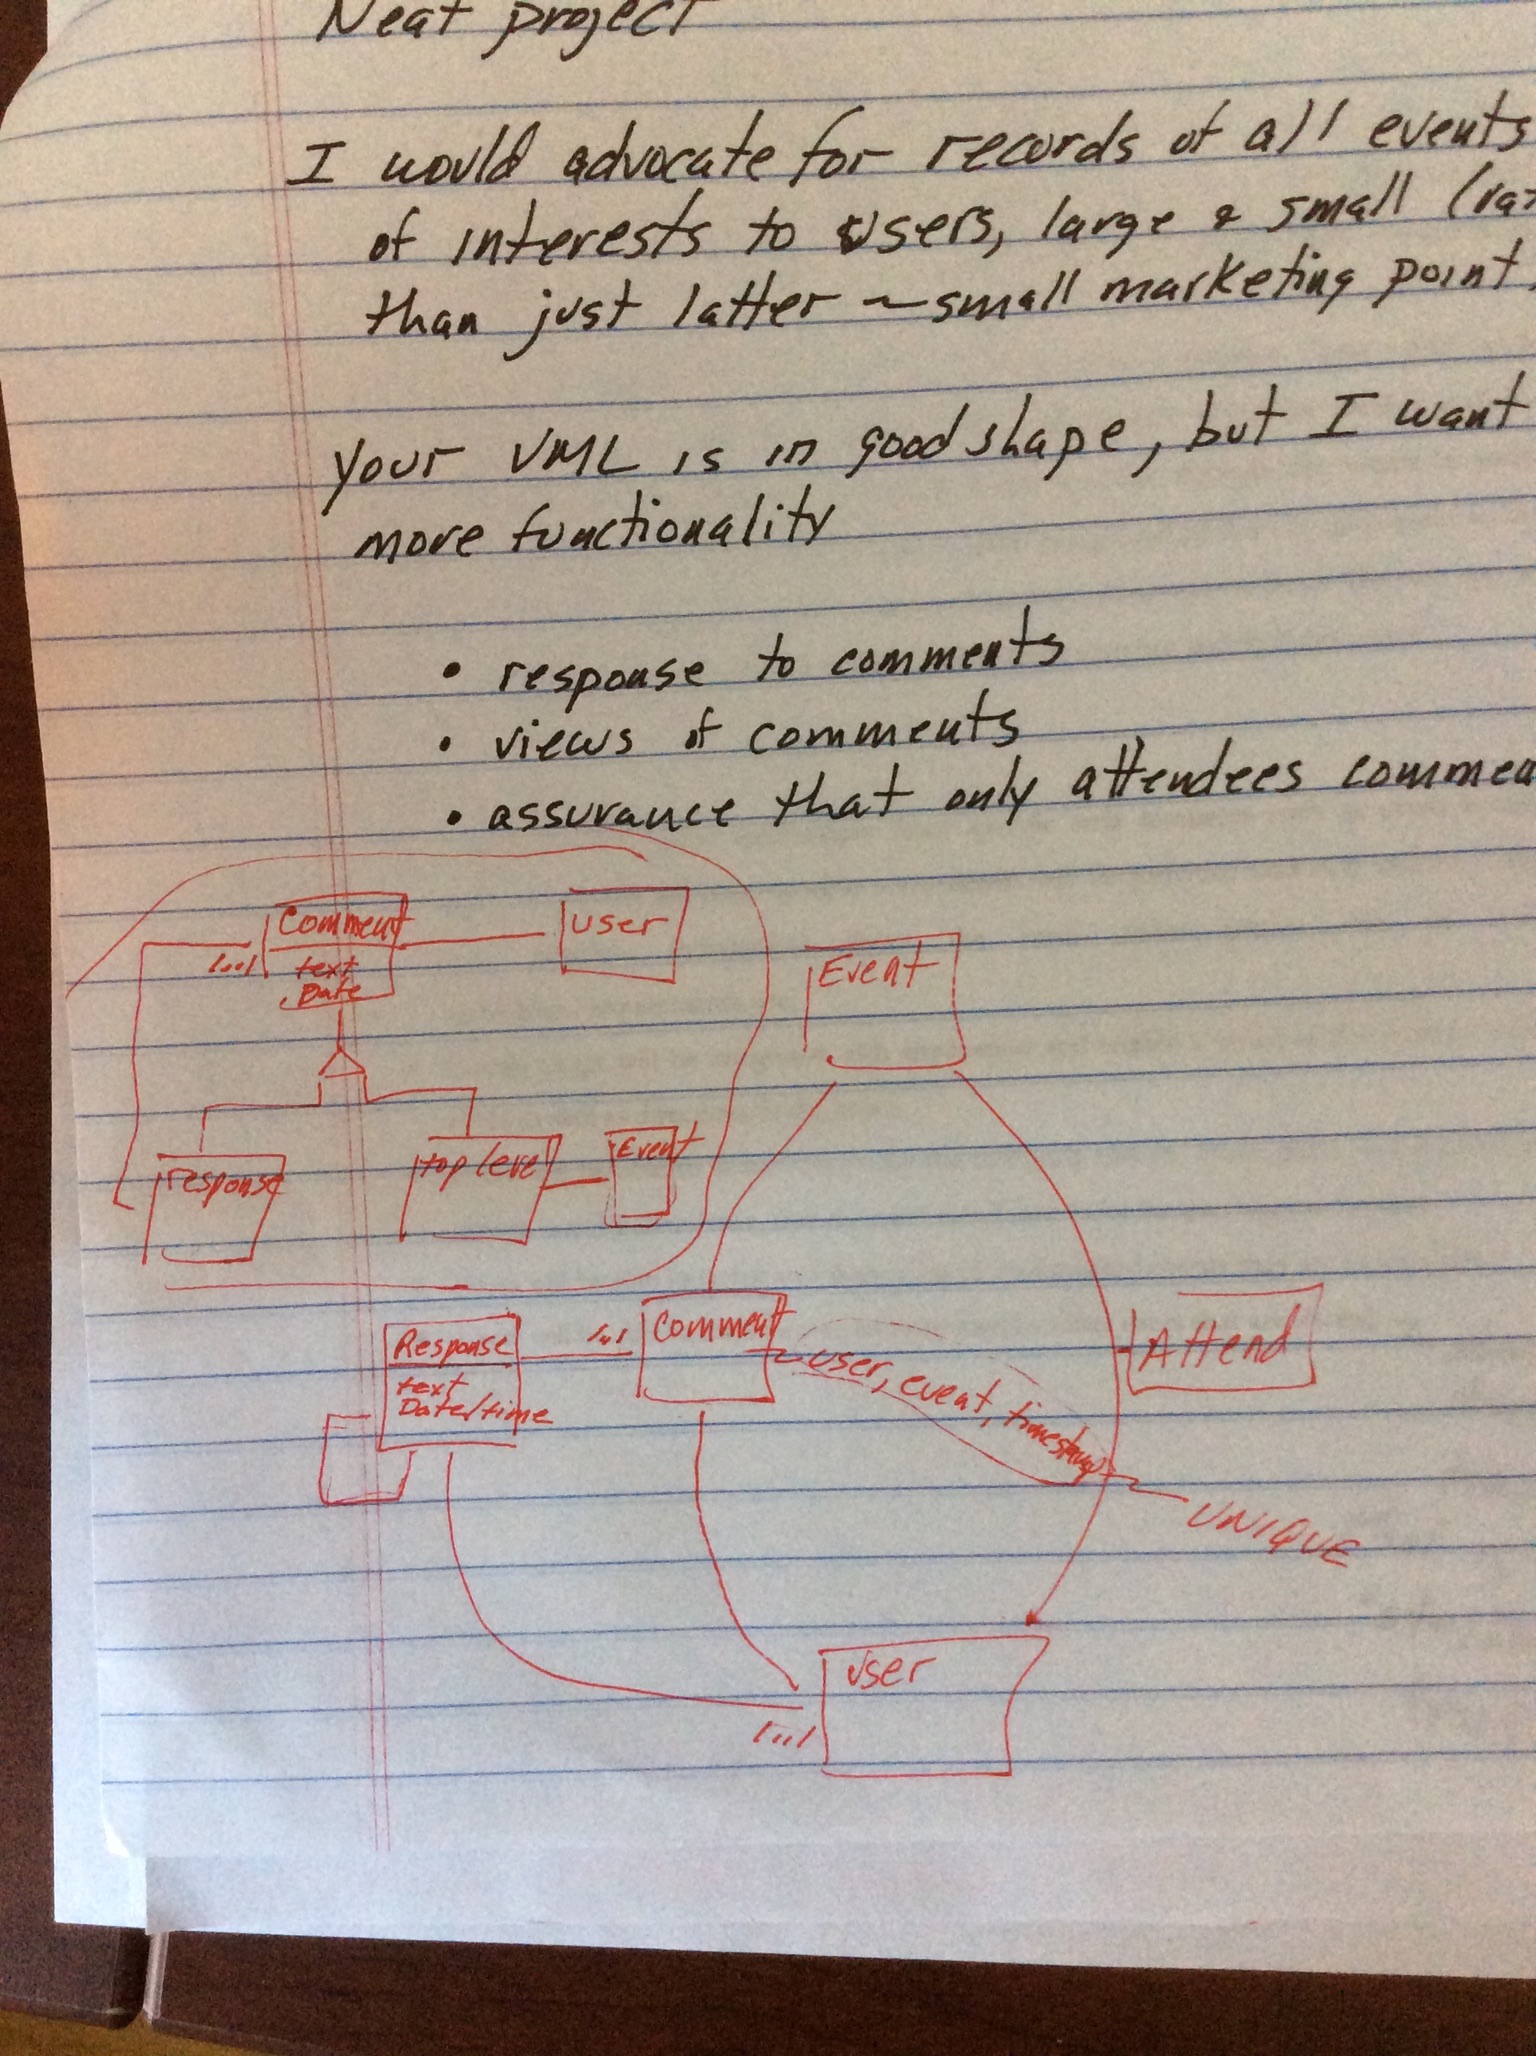 Neat project
I would advocate for records of all events
of interests to users, large & small
than just latter ~ small marketing point.
your UML is in good shape, but I want
more functionality
• response to comments
• views of comments
• assurance that only attendees
Comment
user
1..1
text
Date
Event
response
top level
Event
Response
1..1
Comment
user, event, timestamp
Attend
text
Date/time
UNIQUE
User
1..1